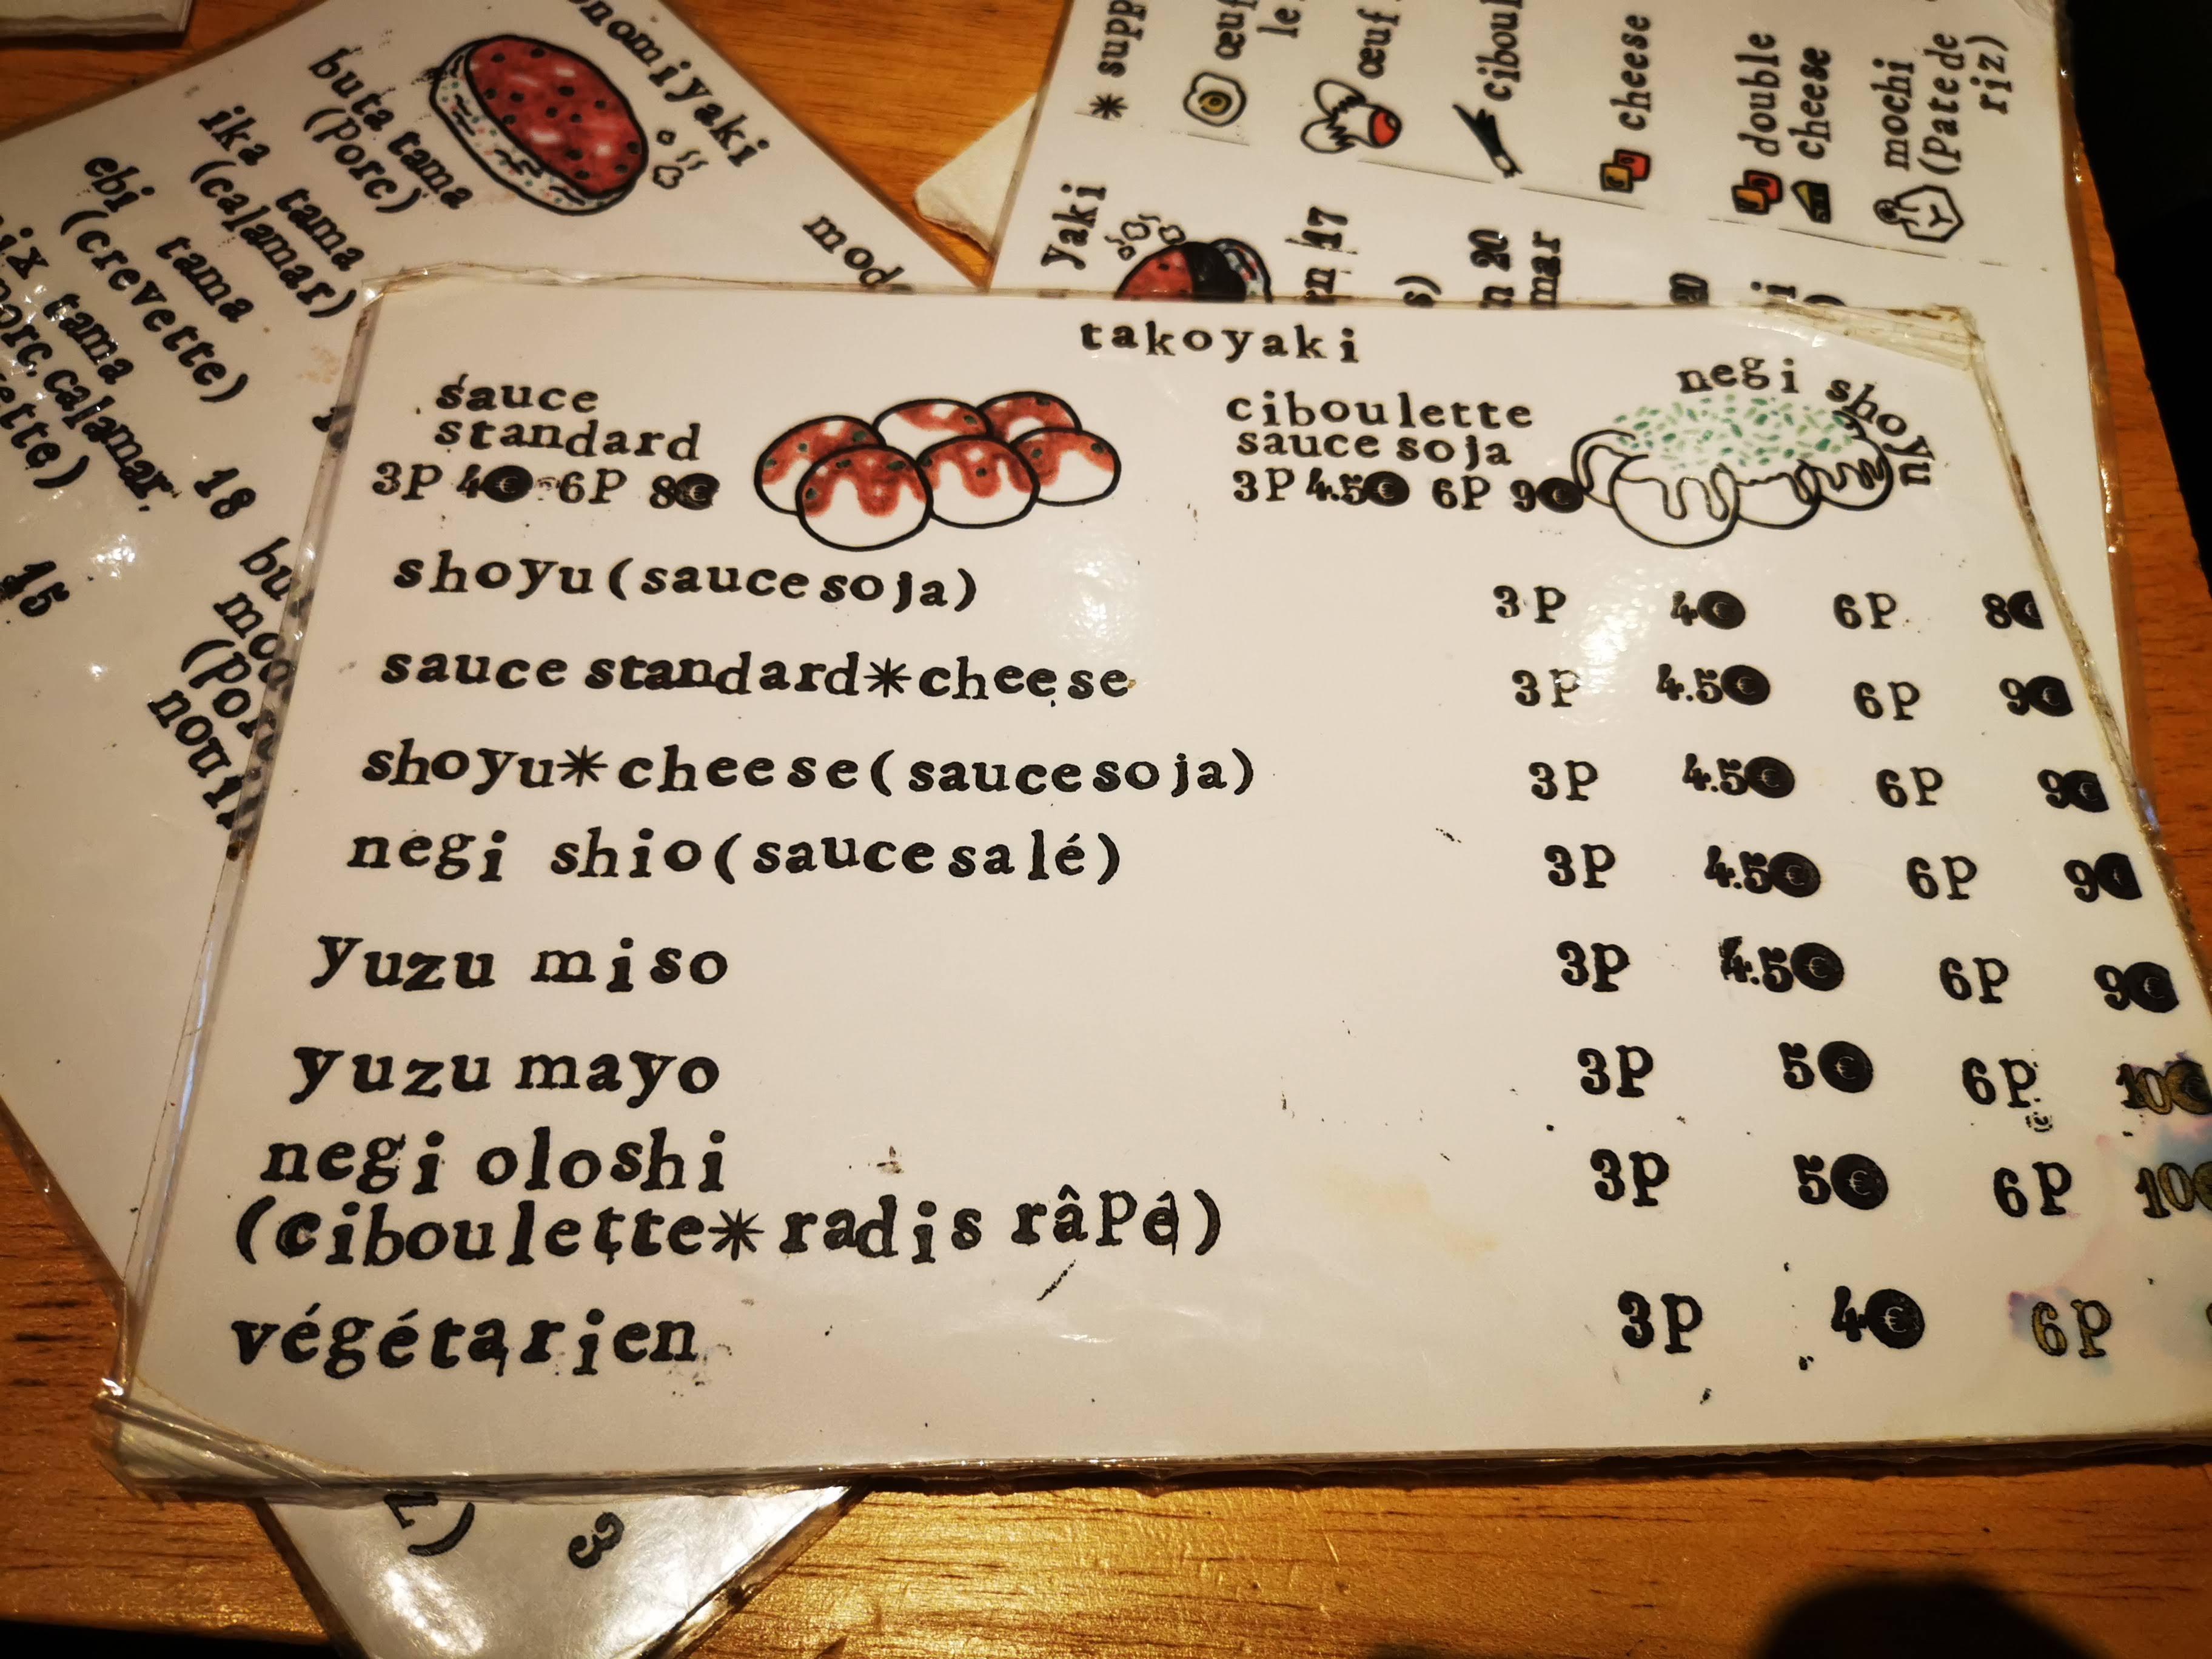 takoyaki
sauce
standard
3P 4€ 6P 8€
ciboulette
sauce soja
3P 4.5€ 6P 9€
negi shoyu
shoyu(sauce soja) 3P 4€ 6P 8€
sauce standard*cheese 3P 4.5€ 6P 9€
shoyu*cheese(sauce soja) 3P 4.5€ 6P 9€
negi shio(sauce salé) 3P 4.5€ 6P 9€
yuzu miso 3P 4.5€ 6P 9€
yuzu mayo 3P 5€ 6P 10€
negi oloshi
(ciboulette*radis râpé) 3P 5€ 6P 10€
végétarien 3P 4€ 6P
buta tama
(porc)
ika tama
(calamar)
ebi tama
(crevette)
tama
calamar.
18
15
* supp
œuf
le
œuf
cheese
double
cheese
mochi
(Pate de
riz)
yaki
17
20
3